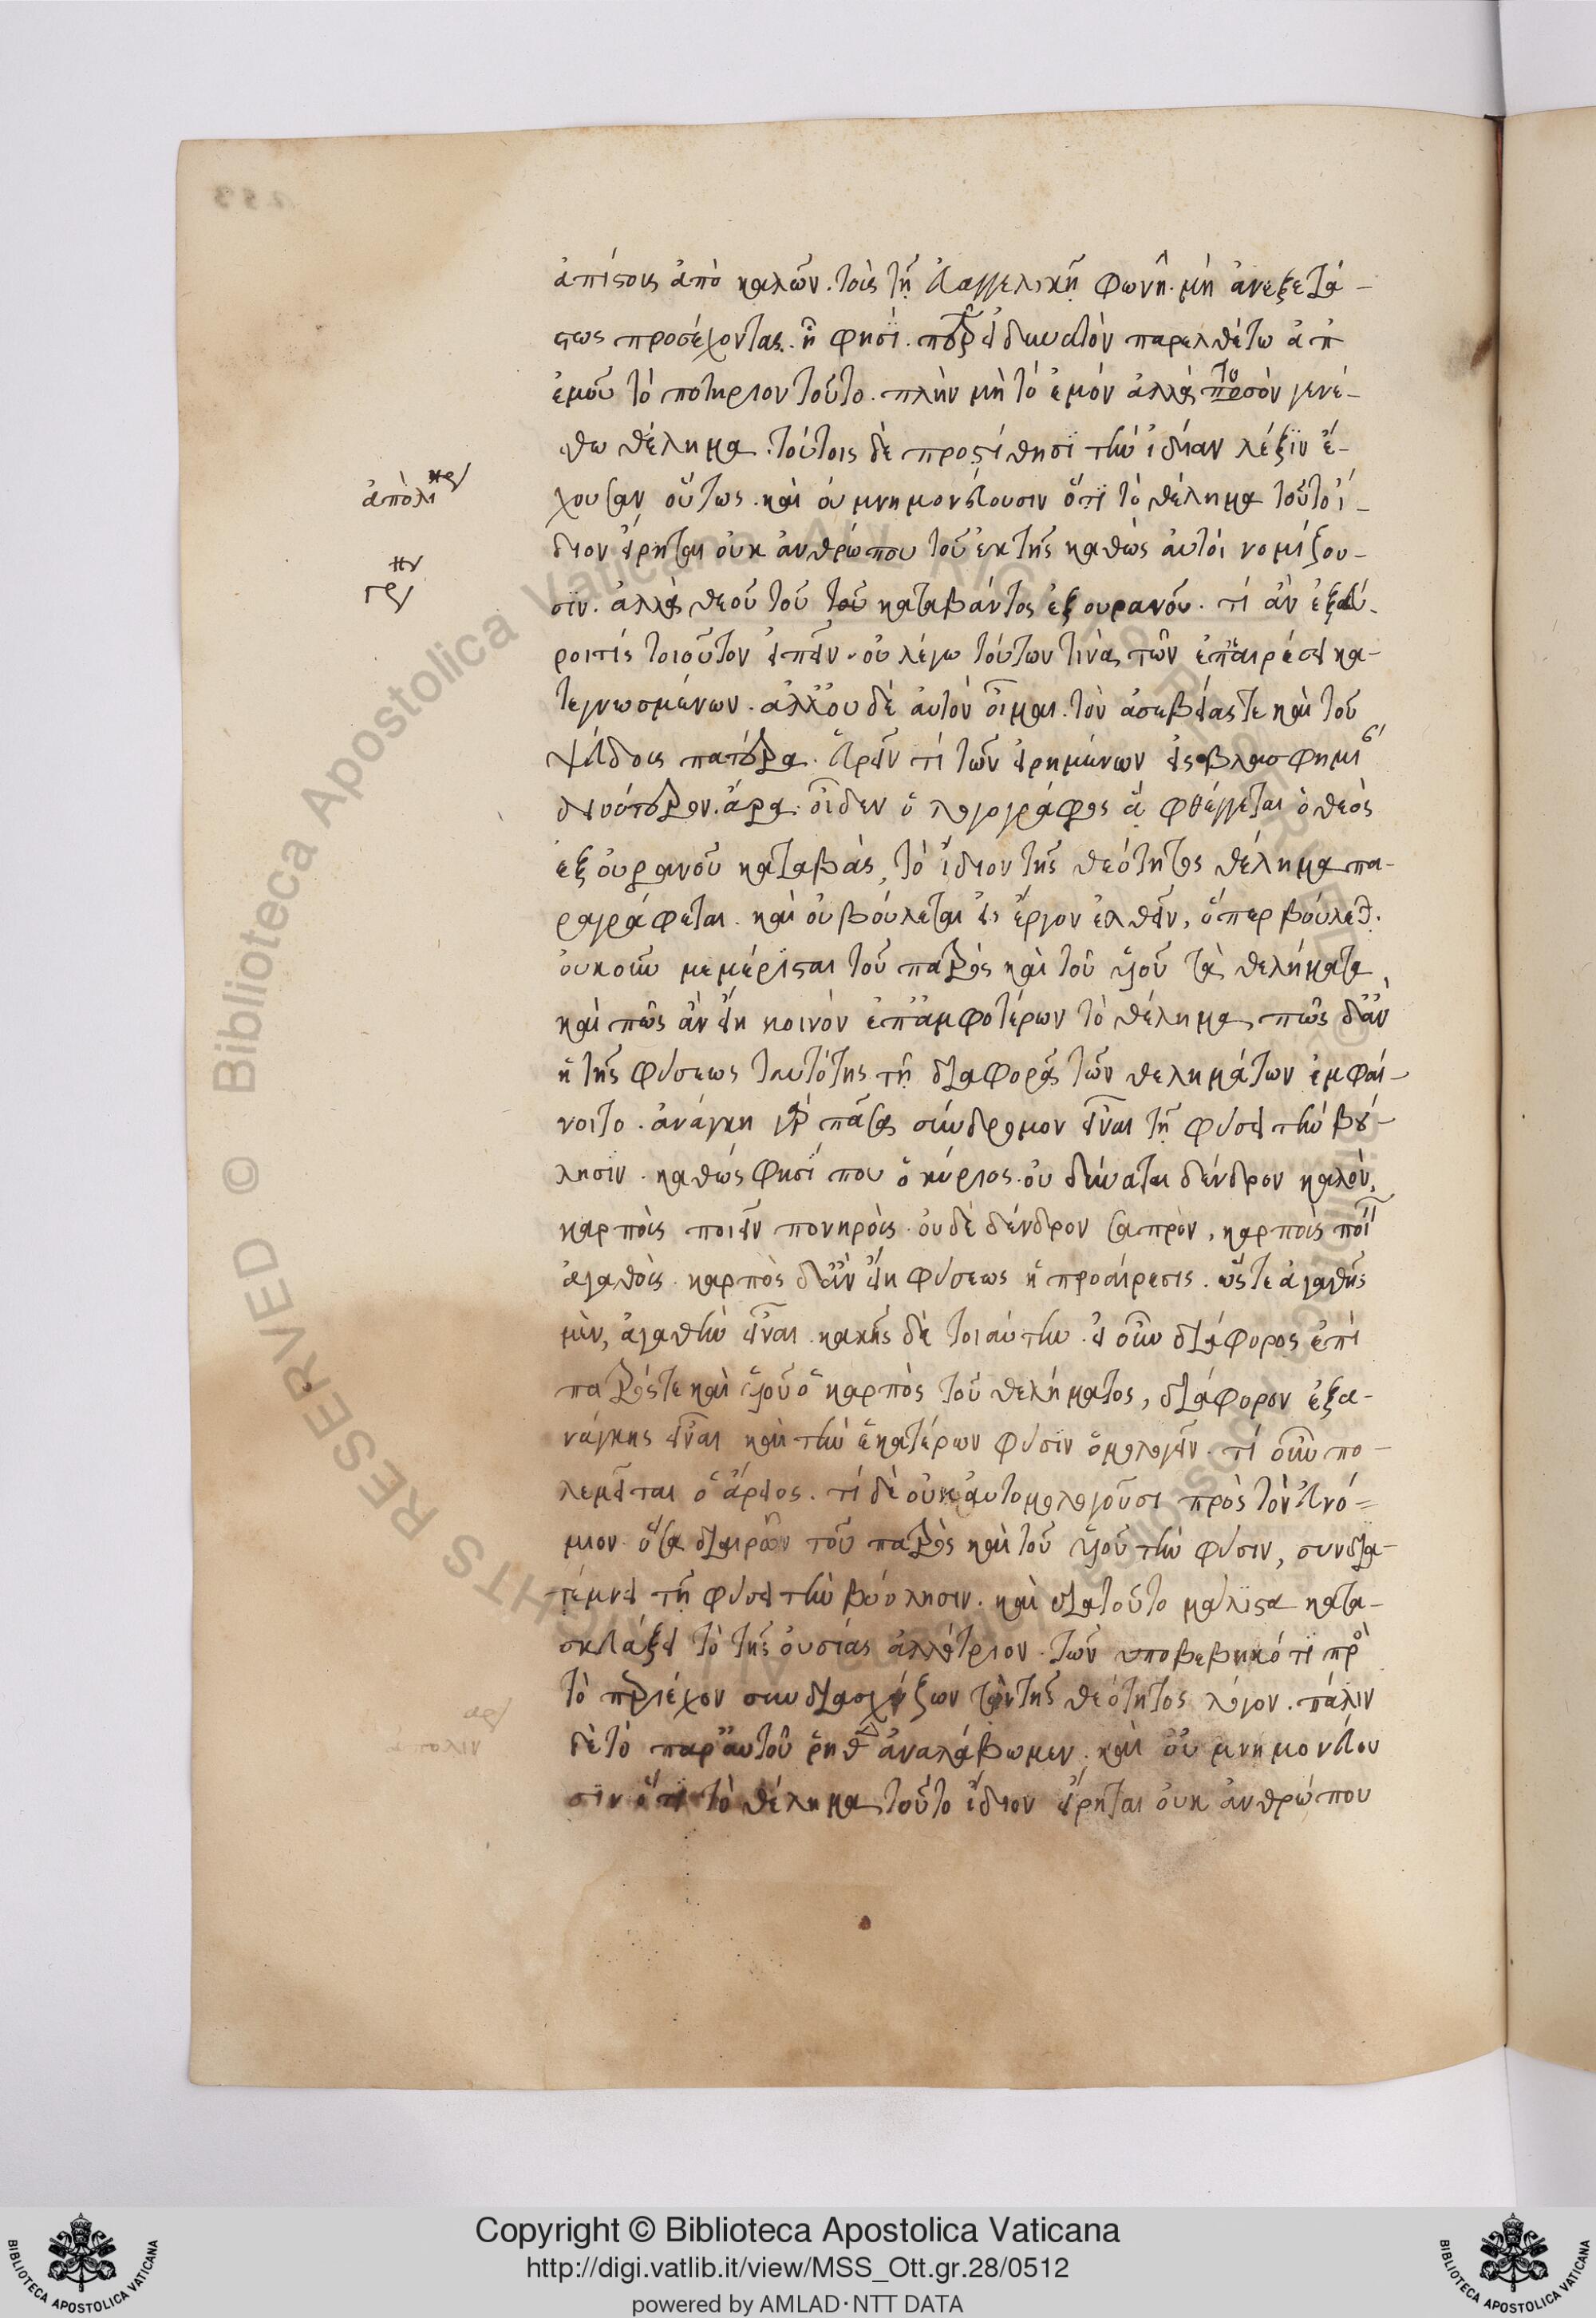 ἀπίστους ἀποκαλῶν. τοὺς τῇ εὐαγγελικῇ φωνῇ. μὴ ἀνεξετά-
στως προσέχοντας. ἥ φησί. πάτερ εἰ δυνατὸν παρελθέτω ἀπ
ἐμοῦ τὸ ποτήριον τοῦτο. πλὴν μὴ τὸ ἐμὸν ἀλλὰ τὸ σὸν γενέ-
σθω θέλημα. τούτοις δὲ προστίθησι τὴν ἰδίαν λέξιν ἔ-
χουσαν οὕτως. καὶ οὐ μνημονεύουσιν ὅτι τὸ θέλημα τοῦτο ἴ-
διον εἴρηται οὐκ ἀνθρώπου τοῦ ἐκ γῆς καθὼς αὐτοὶ νομίζου-
σιν. ἀλλὰ θεοῦ τοῦ τοῦ καταβάντος ἐξ οὐρανοῦ. τί ἂν ἐξεύ-
ροι τίς τοιοῦτον εἰπεῖν. οὐ λέγω τούτων τινὰς τῶν ἐπ αἱρέσει κα-
τεγνωσμένων. ἀλλ οὐδὲ αὐτὸν οἶμαι. τὸν ἀσεβείας τε καὶ τοῦ
ψεύδους πατέρα. εὑρεῖν τί τῶν εἰρημένων εἰς βλασφημί
δεινότερον. ἆρα οἶδεν ὁ λογογράφος ἃ φθέγγεται ὁ θεὸς
ἐξ οὐρανοῦ καταβὰς, τὸ ἴδιον τῆς θεότητος θέλημα πα-
ραγράφεται. καὶ οὐ βούλεται εἰς ἔργον ἐλθεῖν, ὅπερ βούλεται.
οὐκοῦν μεμέρισται τοῦ πατρὸς καὶ τοῦ υἱοῦ τὰ θελήματα
καὶ πῶς ἂν εἴη κοινὸν ἐπ ἀμφοτέρων τὸ θέλημα, πῶς δ ἂν
ἡ τῆς φύσεως ταυτότης τῇ διαφορᾷ τῶν θελημάτων ἐμφαί-
νοιτο. ἀνάγκη γὰρ πᾶσα σύνδρομον εἶναι τῇ φύσει τὴν βού-
λησιν. καθώς φησί που ὁ κύριος. οὐ δύναται δένδρον καλὸν,
καρποὺς ποιεῖν πονηρούς. οὐδὲ δένδρον σαπρὸν, καρποὺς ποιεῖ
ἀγαθούς. καρπὸς δ ἂν εἴη φύσεως ἡ προαίρεσις. ὥστε ἀγαθῆς
μὲν, ἀγαθὴν εἶναι. κακῆς δὲ τοιαύτην. εἰ οὖν διάφορος ἐπὶ
πατρός τε καὶ υἱοῦ ὁ καρπὸς τοῦ θελήματος, διάφορον ἐξ ἀ-
νάγκης εἶναι καὶ τὴν ἑκατέρων φύσιν ὁμολογεῖν. τί οὖν πο-
λεμεῖται ὁ ἄρειος. τί δὲ οὐκ αὐτομολοῦσι πρὸς τὸν εὐνό-
μιον ὅσα διαιρῶν τοῦ πατρὸς καὶ τοῦ υἱοῦ τὴν φύσιν, συνδια-
τέμνει τῇ φύσει τὴν βούλησιν. καὶ διὰ τοῦτο μάλιστα κατα-
σκευάζει τὸ τῆς οὐσίας ἀλλότριον. τῶν ὑποβεβηκότι πρὸ
τὸ περιέχον συνδιασχίζων τὸν τῆς θεότητος λόγον. πάλιν
δὲ τὸ παρ αὐτοῦ ῥηθὲν ἀναλάβωμεν. καὶ οὐ μνημονεύου
σιν ὅτι τὸ θέλημα τοῦτο ἴδιον εἴρηται οὐκ ἀνθρώπου
ἀπολι
Copyright © Biblioteca Apostolica Vaticana
http://digi.vatlib.it/view/MSS_Ott.gr.28/0512
powered by AMLAD·NTT DATA